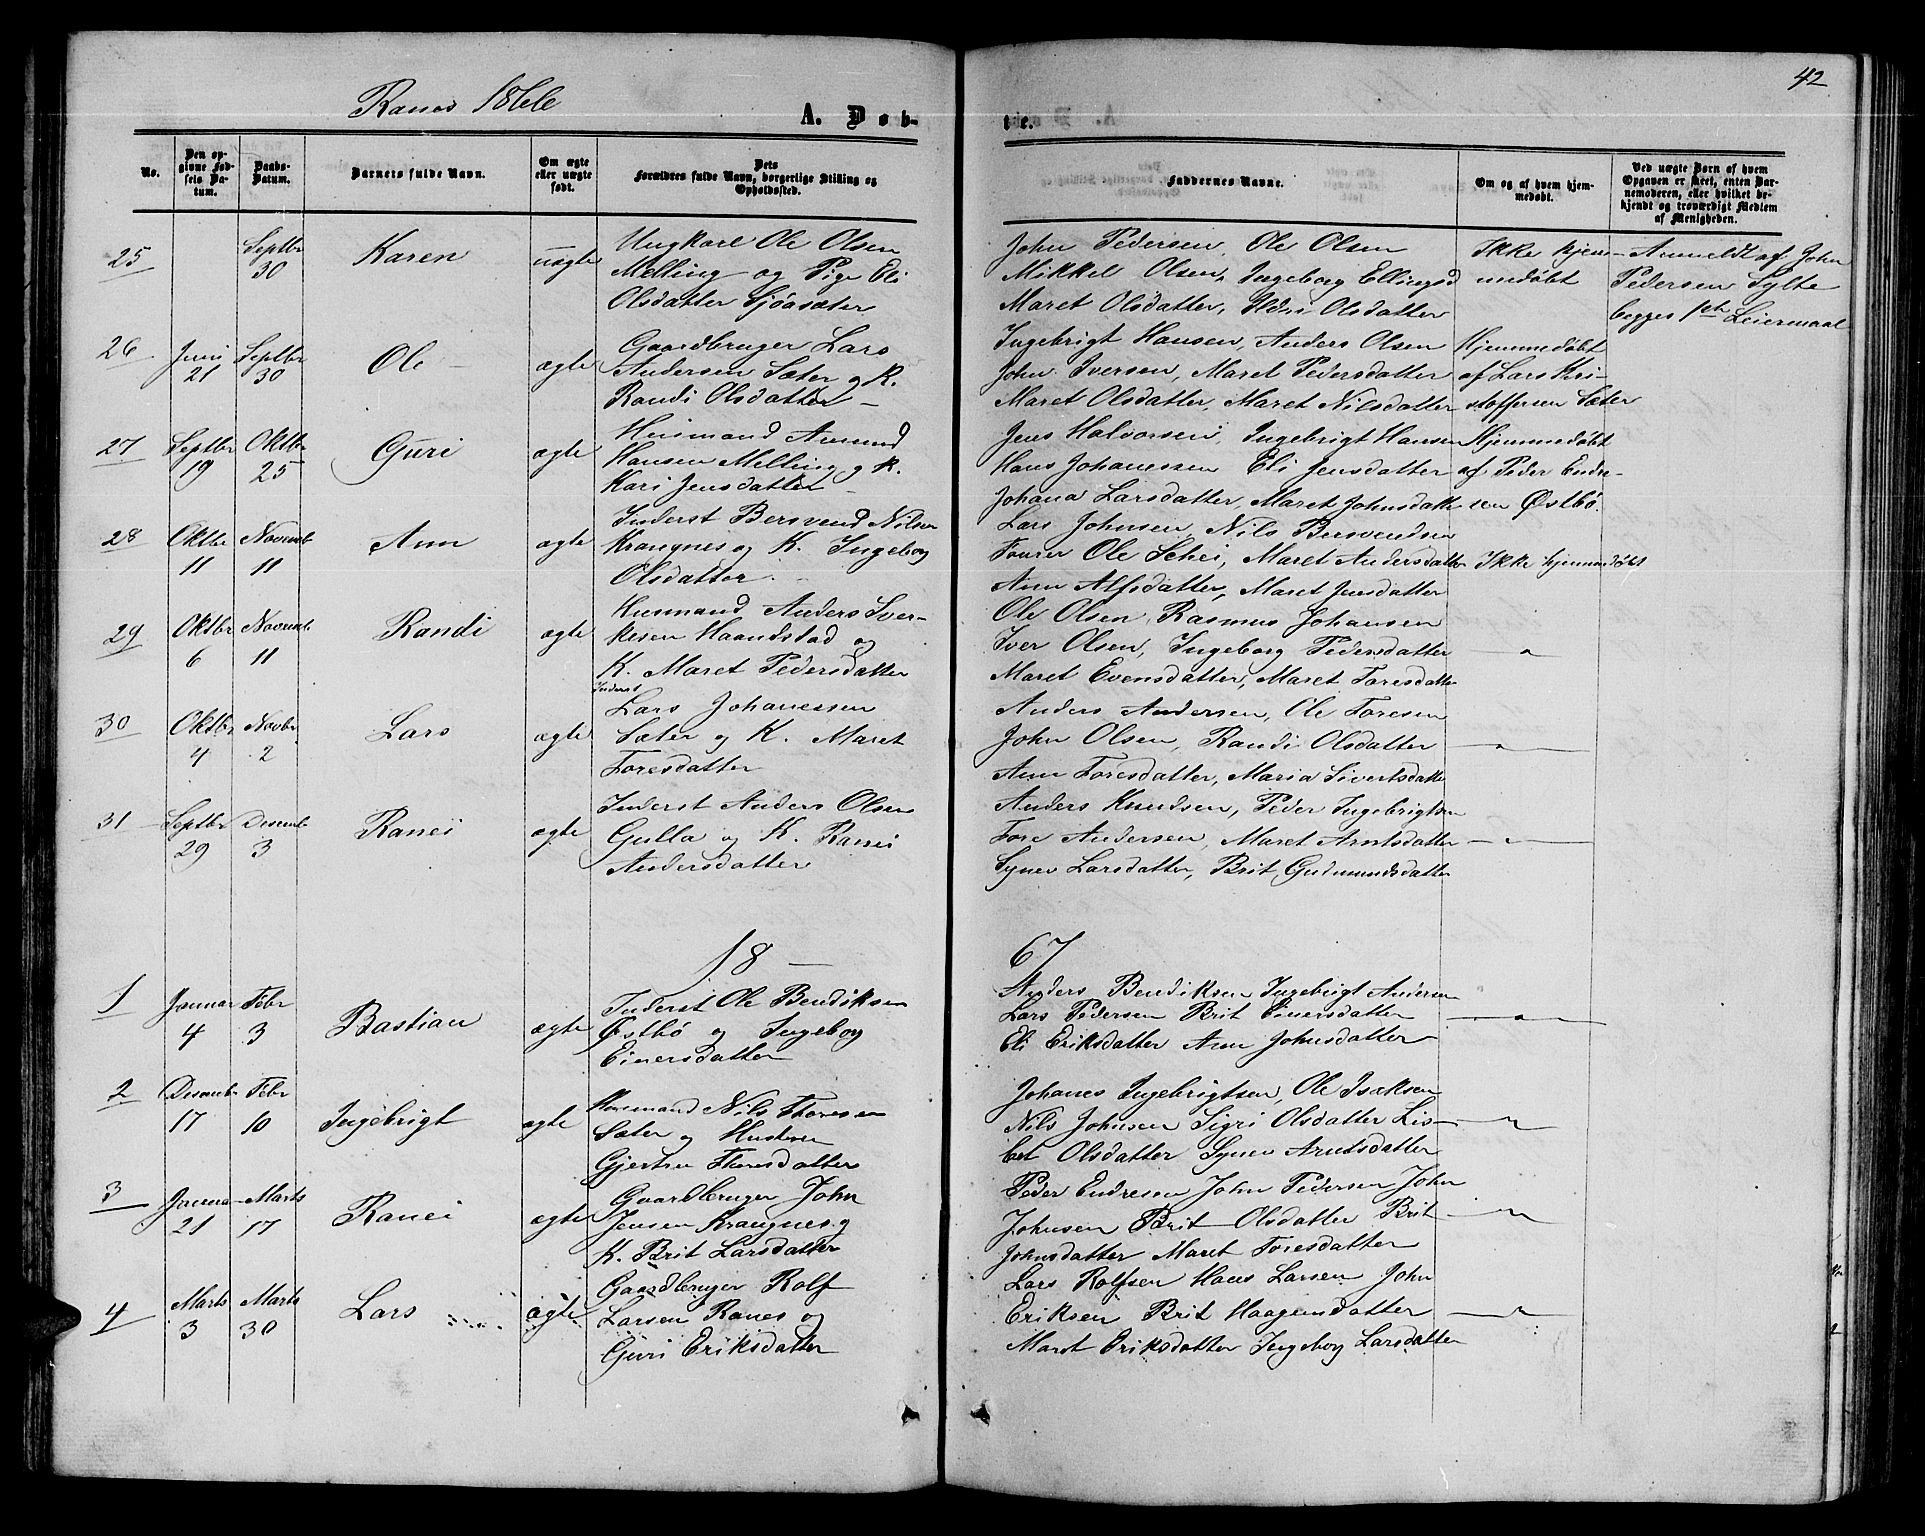 42
Ranes 1866
A. Døb-
te.
No.
Den opgivne Fødsels Datum.
Daabs-Datum.
Barnets fulde Navn.
Om ægte eller uægte født.
Dets Forældres fulde Navn, borgerlige Stilling og Opholdssted.
Faddernes Navne.
Om og af hvem hjemmedøbt.
Ved uægte Børn af hvem Opgaven er skeet, enten Barnemoderen, eller hvilket bekjendt og troværdigt Medlem af Menigheden.
25
Septbr 30
Karen
uægte
Ungkarl Ole Olsen
Melling og Pige Eli
Olsdatter Sjøasæter
John Pedersen, Ole Olsen
Mikkel Olsen, Ingeborg Ellingsd
Maret Olsdatter, Olsdatter
Ikke hjem-
medøbt
Anmeldt af John
Pedersen Sylte
begges 1ste Leiermaal
26
Juni 21
Septbr 30
Ole
ægte
Gaardbruger Lars
Andersen Sæter og K.
Randi Olsdatter
Ingebrigt Hansen, Anders Olsen
John Iversen, Maret Pedersdatter
Maret Olsdatter, Maret Nilsdatter
Hjemmedøbt
af Lars Kri-
stoffersen Sæter
27
Septbr 19
Oktbr 25
Guri
ægte
Huusmand Amund
Hansen Melling og K.
Kari Jensdatter
Jens Halvorsen, Ingebrigt Hansen
Hans Johanessen Eli Jensdatter
Johana Larsdatter, Maret Johnsdatte
Hjemmedøbt
af Peder Endre-
sen Østbø.
28
Oktbr 11
Novemb 11
Ann
ægte
Inderst Bersvend Nilsen
Krangnes og K. Ingeborg
Olsdatter
Lars Johnsen, Nils Bersvendsen
Tourer Ole Schei, Maret Andersdatter
Ann Alfsdatter, Maret Jensdatter
Ikke hjemmedøbt
29
Oktbr 6
Novemb 11
Randi
ægte
Husmand Anders Sver-
kesen Haandstad og
K. Maret Pedersdatter
Ole Olsen, Rasmus Johansen
Iver Olsen, Ingeborg Pedersdatter
Maret Evensdatter, Maret Toresdatter
— " —
30
Oktbr 4
Novbr 2
Lars
ægte
Inderst
Lars Johanessen
Sæter og K. Maret
Toresdatter
Anders Andersen, Ole Toresen
John Olsen, Randi Olsdatter
Ann Toresdatter, Maria Sivertsdatte
— " —
31
Septbr 29
Desemb 3
Ranei
ægte
Inderst Anders Olsen
Gulla og K. Ranei
Andersdatter
Anders Knudsen, Peder Ingebrigtsen
Tore Andersen, Maret Arntsdatter
Synev Larsdatter, Brit Gudmundsdatter
— " —
18 — 67
1
Januar 4
Febr 3
Bastian
ægte
Inderst Ole Bendiksen
Østbø og Ingeborg
Einersdatter
Anders Bendiksen Ingebrigt Andersen
Lars Pedersen Brit Einersdatter
Eli Eriksdatter Ann Johnsdatter
— " —
2
Desemb 17
Febr 10
Ingebrigt
ægte
Huusmand Nils Thoresen
Sæter og Hustruen
Gjertru Thoresdatter
Johanes Ingebrigtsen, Ole Isaksen
Nils Johnsen Sigri Olsdatter Lis-
bet Olsdatter Synev Arntsdatter
— " —
3
Januar 21
Marts 17
Ranei
ægte
Gaardbruger John
Jensen Krangnes og
K. Brit Larsdatter
Peder Endresen John Pedersen John
Johnsen Brit Olsdatter Brit
Johnsdatter Maret Toresdatter
— " —
4
Marts 3
Marts 30
Lars
ægte
Gaardbruger Rolf
Larsen Ranes og
Guri Eriksdatter
Lars Rolfsen Hans Larsen John
Eriksen Brit Haagensdatter
Maret Eriksdatter Ingeborg Larsdatter
— " —